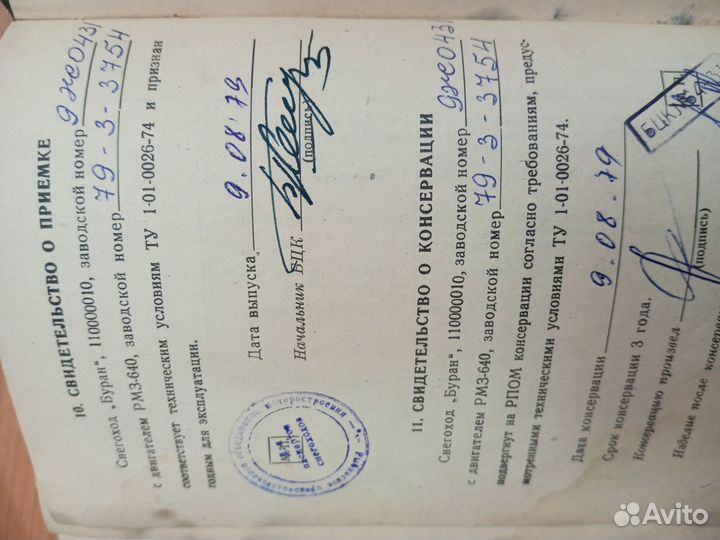 10. СВИДЕТЕЛЬСТВО О ПРИЕМКЕ
Снегоход „Буран“, 110000010, заводской номер 9же0431
с двигателем РМЗ-640, заводской номер 79-3-3754
соответствует техническим условиям ТУ 1-01-0026-74 и признан
годным для эксплуатации.
Дата выпуска 9.08.79
Начальник БЦК
(подпись)
паспортов
снегоходов
11. СВИДЕТЕЛЬСТВО О КОНСЕРВАЦИИ
Снегоход „Буран“, 110000010, заводской номер 9же0431
с двигателем РМЗ-640, заводской номер 79-3-3754
подвергнут на РПОМ консервации согласно требованиям, предус-
мотренными техническими условиями ТУ 1-01-0026-74.
БЦК
Дата консервации 9.08.79
Срок консервации 3 года.
Консервацию произвел
(подпись)
Изделие после консервац
Avito